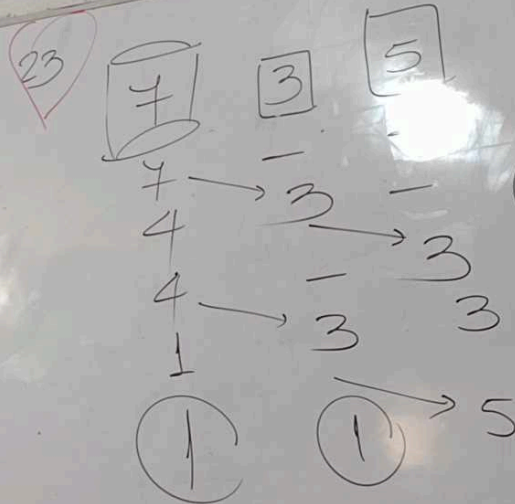 23 7 3 5
- -
7 → 3 -
4 → 3
4 - 3
→ 3
1
1 1 → 5